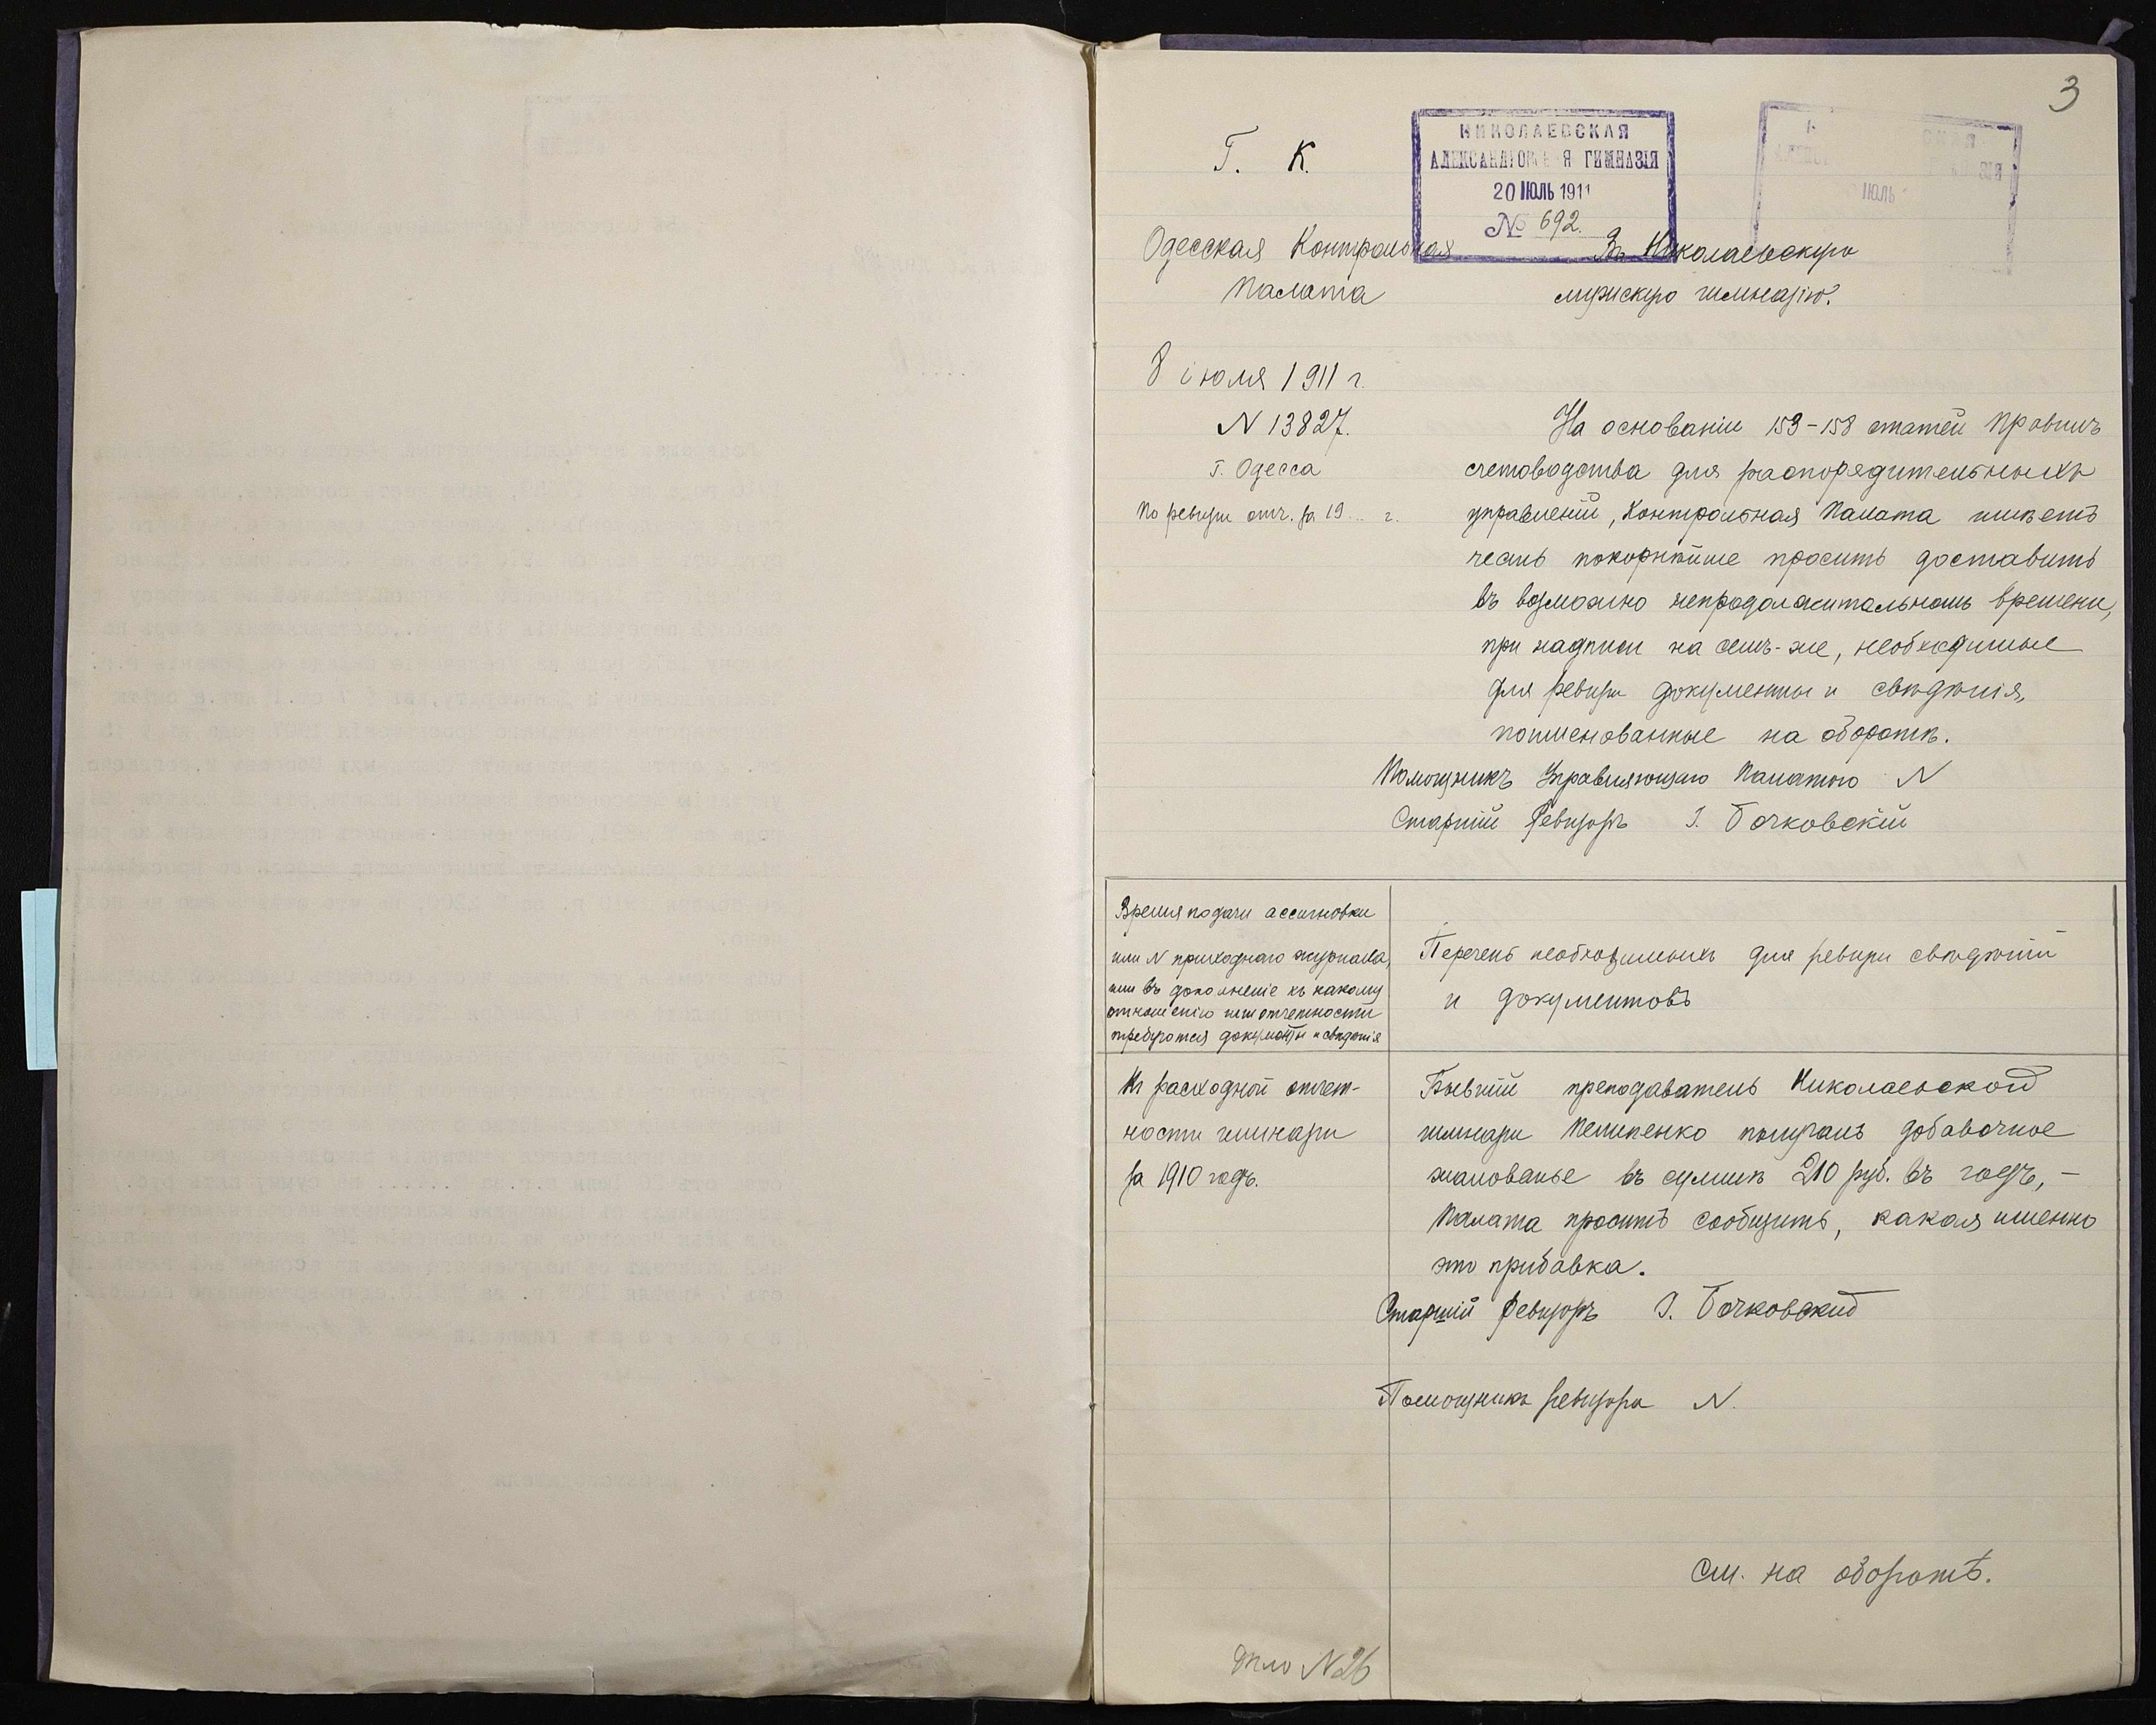 3
Г. К.
НИКОЛАЕВСКАЯ
АЛЕКСАНДРОВСКАЯ ГИМНАЗІЯ
20 ІЮЛЬ 1911
№ 692.
СКАЯ
ЗІЯ
ІЮЛЬ
Одесская Контрольная
Палата
Въ Николаевскую
мужскую гимназію.
8 іюля 1911 г.
N 13827.
г. Одесса
По ревизіи отч. за 19... г.
На основаніи 153-158 статей Правилъ
счетоводства для распорядительныхъ
управленій, Контрольная Палата имѣетъ
честь покорнѣйше просить доставить
въ возможно непродолжительномъ времени,
при надписи на семъ-же, необходимые
для ревизіи документы и свѣдѣнія,
поименованные на оборотѣ.
Помощникъ Управляющаго Палатою N
Старшій Ревизоръ І. Бочковскій
Время подачи ассигновки
или N приходнаго журнала,
или въ дополненіе къ какому
отношенію или отчетности
требуются документы и свѣдѣнія
Перечень необходимыхъ для ревизіи свѣдѣній
и документовъ
Къ расходной отчет-
ности гимназіи
за 1910 годъ.
Бывшій преподаватель Николаевской
гимназіи Пелипенко получалъ добавочное
жалованье въ суммѣ 210 руб. въ годъ, -
Палата проситъ сообщить, какая именно
это прибавка.
Старшій Ревизоръ І. Бочковскій
Помощникъ ревизора N.
См. на оборотѣ.
Дѣло N 26